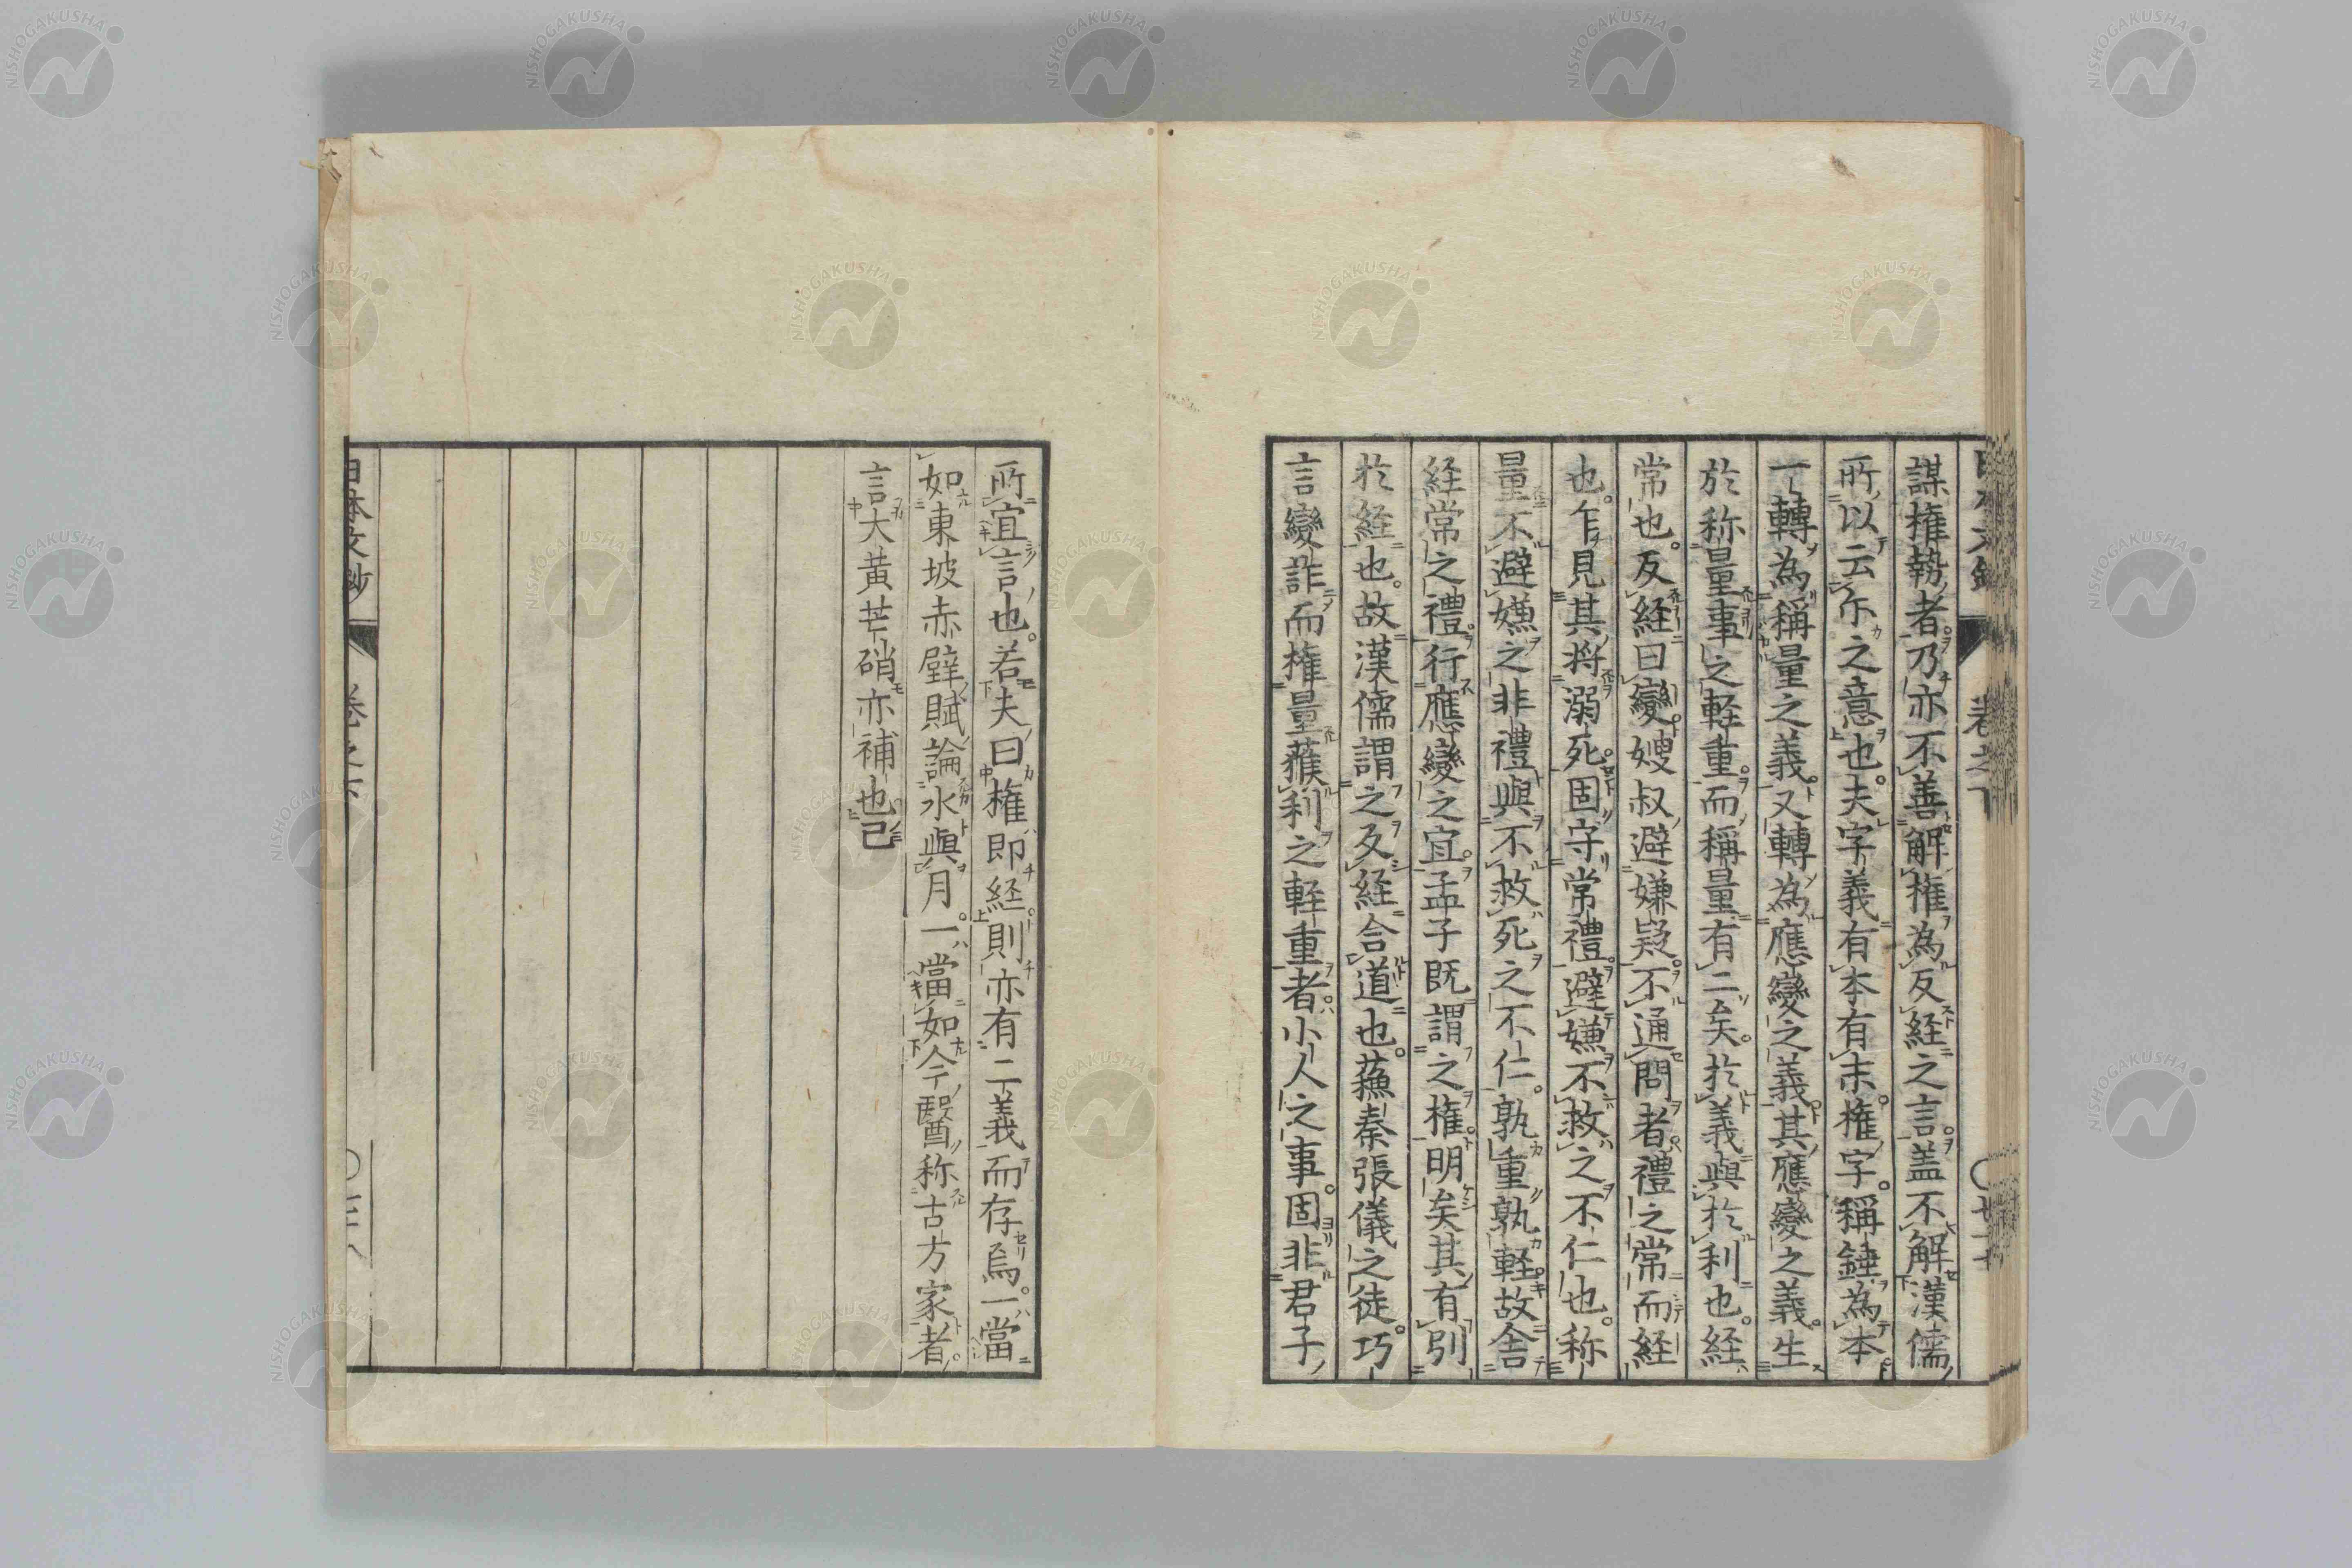 謀權勢者。乃亦不善解權為反経之言。盖不解漢儒
所以云尓之意也。夫字義有本有末。權字。稱錘為本。
一轉為稱量之義。又轉為應變之義。其應變之義。生
於称量事之軽重。而稱量有二矣。於義與於利也。経
常也。反経曰變。嫂叔避嫌疑。不通問者。禮之常而経
也。乍見其将溺死。固守常禮。避嫌不救之不仁也。称
量不避嫌之非禮與不救死之不仁。孰重孰軽。故舎
経常之禮。行應變之宜。孟子既謂之權。明矣其有別
於経也。故漢儒謂之反経合道也。蘓秦張儀之徒。巧
言變詐而權量利之軽重者。小人之事。固非君子
所宜言也。若夫曰權即経。則亦有二義而存焉。一當
如東坡赤壁賦論水與月。一當如今醫称古方家者。
言大黄芒硝亦補也已
日本文鈔
卷之下
NISHOGAKUSHA